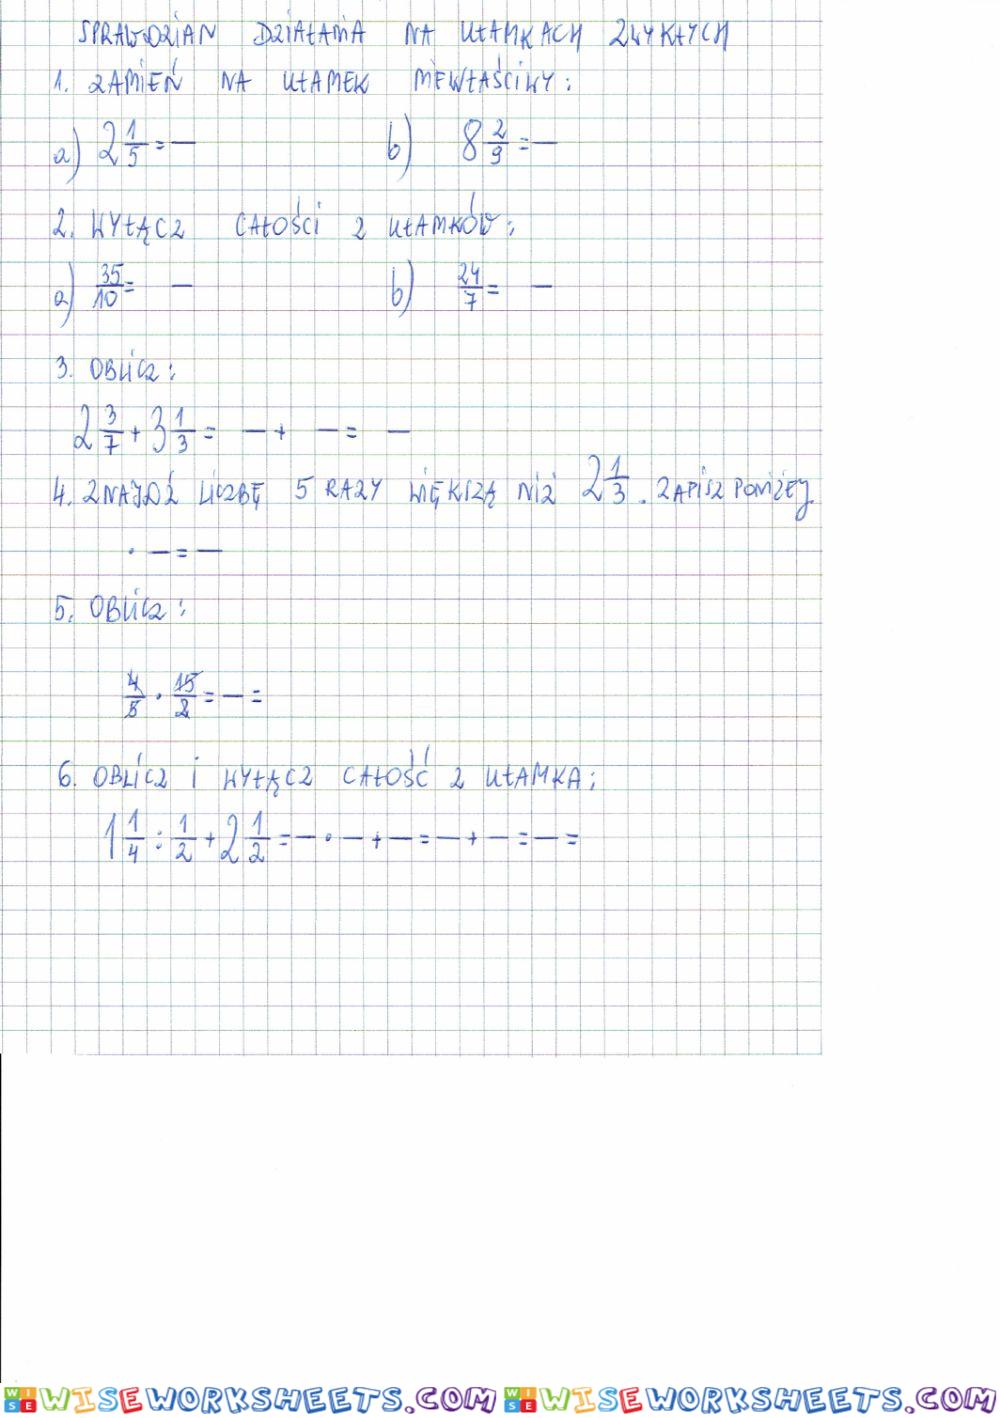 SPRAWDZIAN DZIAŁANIA NA UŁAMKACH ZWYKŁYCH
1. ZAMIEŃ NA UŁAMEK NIEWŁAŚCIWY:
a) 2 1/5 = — b) 8 2/9 = —
2. WYŁĄCZ CAŁOŚCI Z UŁAMKÓW:
a) 35/10 = — b) 24/7 = —
3. OBLICZ:
2 3/7 + 3 1/3 = — + — = —
4. ZNAJDŹ LICZBĘ 5 RAZY WIĘKSZĄ NIŻ 2 1/3. ZAPISZ PONIŻEJ.
· — = —
5. OBLICZ:
4/5 · 15/2 = — =
6. OBLICZ I WYŁĄCZ CAŁOŚĆ Z UŁAMKA:
1 1/4 : 1/2 + 2 1/2 = — · — + — = — + — = — =
WISE WISEWORKSHEETS.COM WISE WISEWORKSHEETS.COM